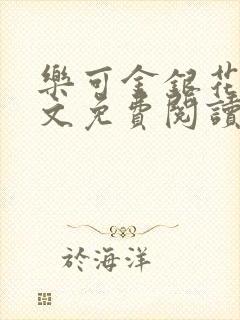 樂可金銀花
文免費閱讀
於海洋